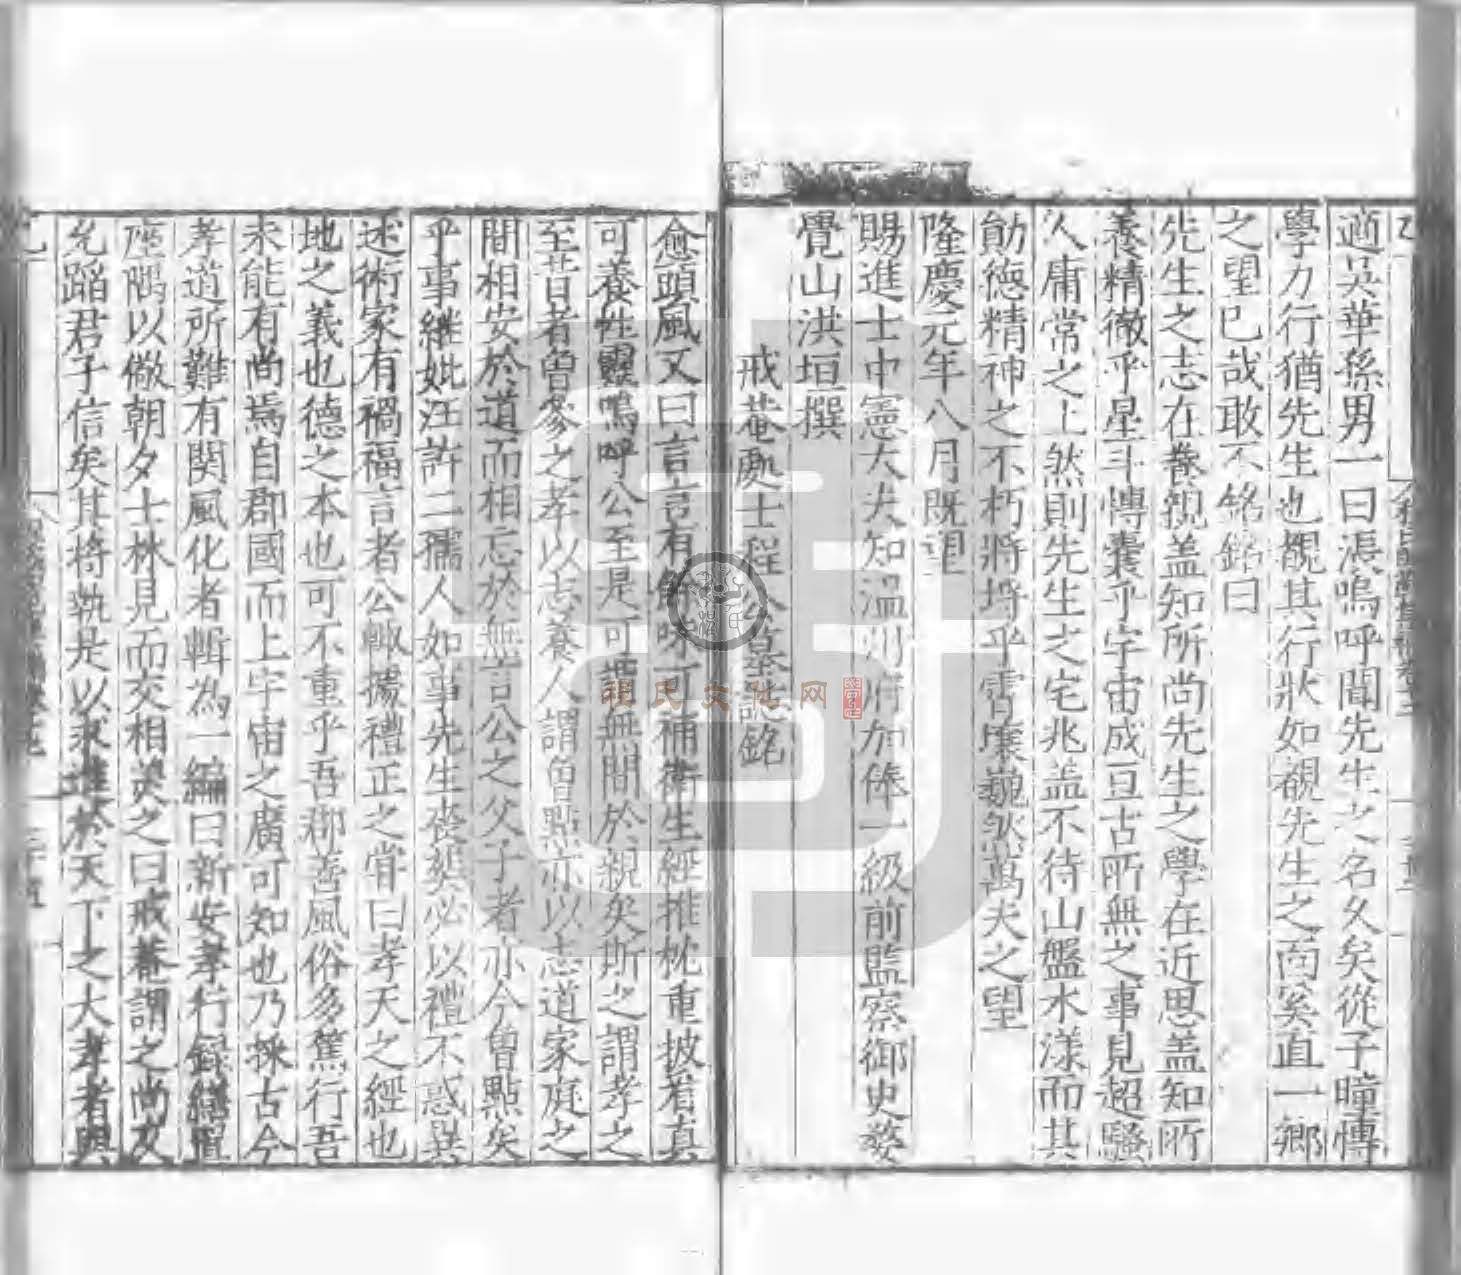 適吳華孫男一曰漲嗚呼聞先生之名久矣從子瞳慱
學力行猶先生也覩其行狀如覩先生之而奚直一鄉
之望已哉敢不銘銘曰
先生之志在養親盖知所尚先生之學在近思盖知所
養精微乎星斗慱囊乎宇宙成亘古所無之事見超騷
人庸常之上然則先生之宅兆盖不待山盤水漾而其
勛德精神之不朽將埒乎霄壤巍然萬夫之望
隆慶元年八月既望
賜進士中憲大夫知溫州府加俸一級前監察御史婺
覺山洪垣撰
戒菴處士程公墓誌銘
愈頭風又曰言言有餘味可補衛生經推枕重披着真
可養性靈嗚呼公至是可謂無間於親矣斯之謂孝之
至昔者曾參之孝以志養人謂曾點亦以志道家庭之
間相安於道而相忘於無言公之父子者亦今曾點矣
乎事継妣汪許二孺人如事先生喪葬必以禮不惑異
述術家有禍福言者公輙據禮正之甞曰孝天之經也
地之義也德之本也可不重乎吾郡善風俗多篤行吾
未能有尚焉自郡國而上宇宙之廣可知也乃採古今
孝道所難有関風化者輯為一編曰新安孝行録繕置
座隅以儆朝夕士林見而交相美之曰戒菴謂之尚友
允蹈君子信矣其将執是以求進於天下之大孝者與
程氏文化网